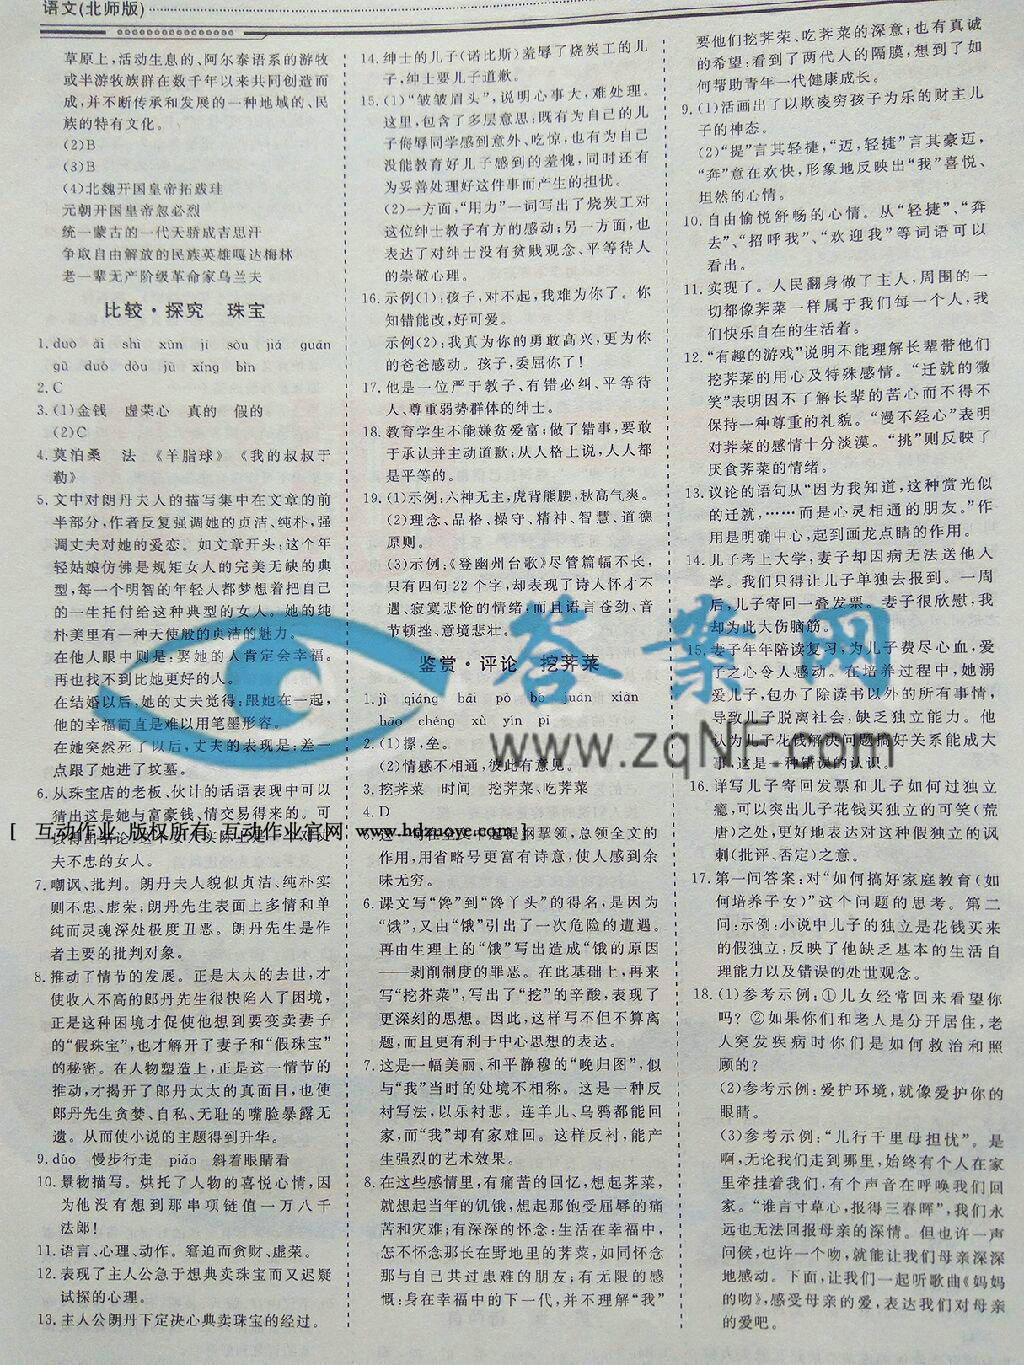 语文(北师版)
草原上,活动生息的、阿尔泰语系的游牧
或半游牧族群在数千年以来共同创造而
成,并不断传承和发展的一种地域的、民
族的特有文化。
(2)B
(3)B
(4)北魏开国皇帝拓跋珪
元朝开国皇帝忽必烈
统一蒙古的一代天骄成吉思汗
争取自由解放的民族英雄嘎达梅林
老一辈无产阶级革命家乌兰夫
比较·探究 珠宝
1. duó āi shì xùn jì sōu jiá guàn
gū duó dòu jù xíng bìn
2. C
3. (1)金钱 虚荣心 真的 假的
(2)C
4. 莫泊桑 法 《羊脂球》 《我的叔叔于
勒》
5. 文中对朗丹夫人的描写集中在文章的前
半部分,作者反复强调她的贞洁、纯朴,强
调丈夫对她的爱恋。如文章开头:这个年
轻姑娘仿佛是规矩女人的完美无缺的典
型,每一个明智的年轻人都梦想着把自己
的一生托付给这种典型的女人。她的纯
朴美里有一种天使般的贞洁的魅力。
在他人眼中则是:娶她的人肯定会幸福。
再也找不到比她更好的人。
在结婚以后,她的丈夫觉得:跟她在一起,
他的幸福简直是难以用笔墨形容。
在她突然死了以后,丈夫的表现是:差一
点跟了她进了坟墓。
6. 从珠宝店的老板、伙计的话语表现中可以
猜出这是她与富豪钱、情交易得来的。可
夫不忠的女人。
7. 嘲讽、批判。朗丹夫人貌似贞洁、纯朴实
则不忠、虚荣;朗丹先生表面上多情和单
纯而灵魂深处极度丑恶。朗丹先生是作
者主要的批判对象。
8. 推动了情节的发展。正是太太的去世,才
使收入不高的郎丹先生很快陷入了困境,
正是这种困境才促使他想到要变卖妻子
的“假珠宝”,也才解开了妻子和“假珠宝”
的秘密。在人物塑造上,正是这一情节的
推动,才揭开了郎丹太太的真面目,也使
郎丹先生贪婪、自私、无耻的嘴脸暴露无
遗。从而使小说的主题得到升华。
9. duó 慢步行走 piǎo 斜着眼睛看
10. 景物描写。烘托了人物的喜悦心情,因
为他没有想到那串项链值一万八千
法郎!
11. 语言、心理、动作。窘迫而贪财、虚荣。
12. 表现了主人公急于想典卖珠宝而又迟疑
试探的心理。
13. 主人公朗丹下定决心典卖珠宝的经过。
14. 绅士的儿子(诺比斯)羞辱了烧炭工的儿
子,绅士要儿子道歉。
15. (1)“皱皱眉头”,说明心事大,难处理。
这里,包含了多层意思:既有为自己的儿
子侮辱同学感到意外、吃惊,也有为自己
没能教育好儿子感到的羞愧,同时还有
为妥善处理好这件事而产生的担忧。
(2)一方面,“用力”一词写出了烧炭工对
这位绅士教子有方的感动;另一方面,也
表达了对绅士没有贫贱观念、平等待人
的崇敬心理。
16. 示例(1):孩子,对不起,我难为你了。你
知错能改,好可爱。
示例(2):我真为你的勇敢高兴,更为你
的爸爸感动。孩子,委屈你了!
17. 他是一位严于教子、有错必纠、平等待
人、尊重弱势群体的绅士。
18. 教育学生不能嫌贫爱富;做了错事,要敢
于承认并主动道歉;从人格上说,人人都
是平等的。
19. (1)示例:六神无主,虎背熊腰,秋高气爽。
(2)理念、品格、操守、精神、智慧、道德
原则。
(3)示例:《登幽州台歌》尽管篇幅不长,
只有四句22个字,却表现了诗人怀才不
遇、寂寞悲怆的情绪,而且语言苍劲、音
节顿挫、意境悲壮。
鉴赏·评论 挖荠菜
2. (1)摞,垒。
(2)情感不相通,彼此有意见。
3. 挖荠菜 时间 挖荠菜、吃荠菜
4. D
作用,用省略号更富有诗意,使人感到余
味无穷。
6. 课文写“馋”到“馋丫头”的得名,是因为
“饿”,又由“饿”引出了一次危险的遭遇。
再由生理上的“饿”写出造成“饿的原因
——剥削制度的罪恶。在此基础上,再来
写“挖荠菜”,写出了“挖”的辛酸,表现了
更深刻的思想。因此,这样写不但不算离
题,而且更有利于中心思想的表达。
7. 这是一幅美丽、和平静穆的“晚归图”,似
与“我”当时的处境不相称。这是一种反
衬写法,以乐衬悲。连羊儿、乌鸦都能回
家,而“我”却有家难回。这样反衬,能产
生强烈的艺术效果。
8. 在这些感情里,有痛苦的回忆,想起荠菜,
就想起当年的饥饿,想起那饱受屈辱的痛
苦和灾难;有深深的怀念:生活在幸福中,
怎不怀念那长在野地里的荠菜,如同怀念
那与自己共过患难的朋友;有无限的感
慨:身在幸福中的下一代,并不理解“我”
要他们挖荠菜、吃荠菜的深意;也有真诚
的希望:看到了两代人的隔膜,想到了如
何帮助青年一代健康成长。
9. (1)活画出了以欺凌穷孩子为乐的财主儿
子的神态。
(2)“提”言其轻捷,“迈,轻捷”言其豪迈,
“奔”意在欢快,形象地反映出“我”喜悦、
坦然的心情。
10. 自由愉悦舒畅的心情。从“轻捷”、“奔
去”、“招呼我”、“欢迎我”等词语可以
看出。
11. 实现了。人民翻身做了主人,周围的一
切都像荠菜一样属于我们每一个人,我
们快乐自在的生活着。
12. “有趣的游戏”说明不能理解长辈带他们
挖荠菜的用心及特殊感情。“迁就的微
笑”表明因不了解长辈的苦心而不得不
保持一种尊重的礼貌。“漫不经心”表明
对荠菜的感情十分淡漠。“挑”则反映了
厌食荠菜的情绪。
13. 议论的语句从“因为我知道,这种赏光似
的迁就,……而是心灵相通的朋友。”作
用是明确中心,起到画龙点睛的作用。
14. 儿子考上大学,妻子却因病无法送他入
学。我们只得让儿子单独去报到。一周
后,儿子寄回一叠发票。妻子很欣慰,我
却为此大伤脑筋。
15. 妻子年年陪读复习,为儿子费尽心血,爱
子之心令人感动。在培养过程中,她溺
爱儿子,包办了除读书以外的所有事情,
导致儿子脱离社会,缺乏独立能力。他
认为儿子花钱解决问题搞好关系能成大
事,这是一种错误的认识。
16. 详写儿子寄回发票和儿子如何过独立
瘾,可以突出儿子花钱买独立的可笑(荒
唐)之处,更好地表达对这种假独立的讽
刺(批评、否定)之意。
17. 第一问答案:对“如何搞好家庭教育(如
何培养子女)”这个问题的思考。第二
问:示例:小说中儿子的独立是花钱买来
的假独立;反映了他缺乏基本的生活自
理能力以及错误的处世观念。
18. (1)参考示例:①儿女经常回来看望你
吗?②如果你们和老人是分开居住,老
人突发疾病时你们是如何救治和照
顾的?
(2)参考示例:爱护环境,就像爱护你的
眼睛。
(3)参考示例:“儿行千里母担忧”。是
啊,无论我们走到那里,始终有个人在家
里牵挂着我们,有个声音在呼唤我们回
家。“谁言寸草心,报得三春晖”,我们永
远也无法回报母亲的深情。但也许一声
问候,也许一个吻,就能让我们母亲深深
地感动。下面,让我们一起听歌曲《妈妈
的吻》,感受母亲的爱,表达我们对母亲
的爱吧。
答案网
www.zqNF.com
[ 互动作业:版权所有 互动作业官网: www.hdzuoye.com ]